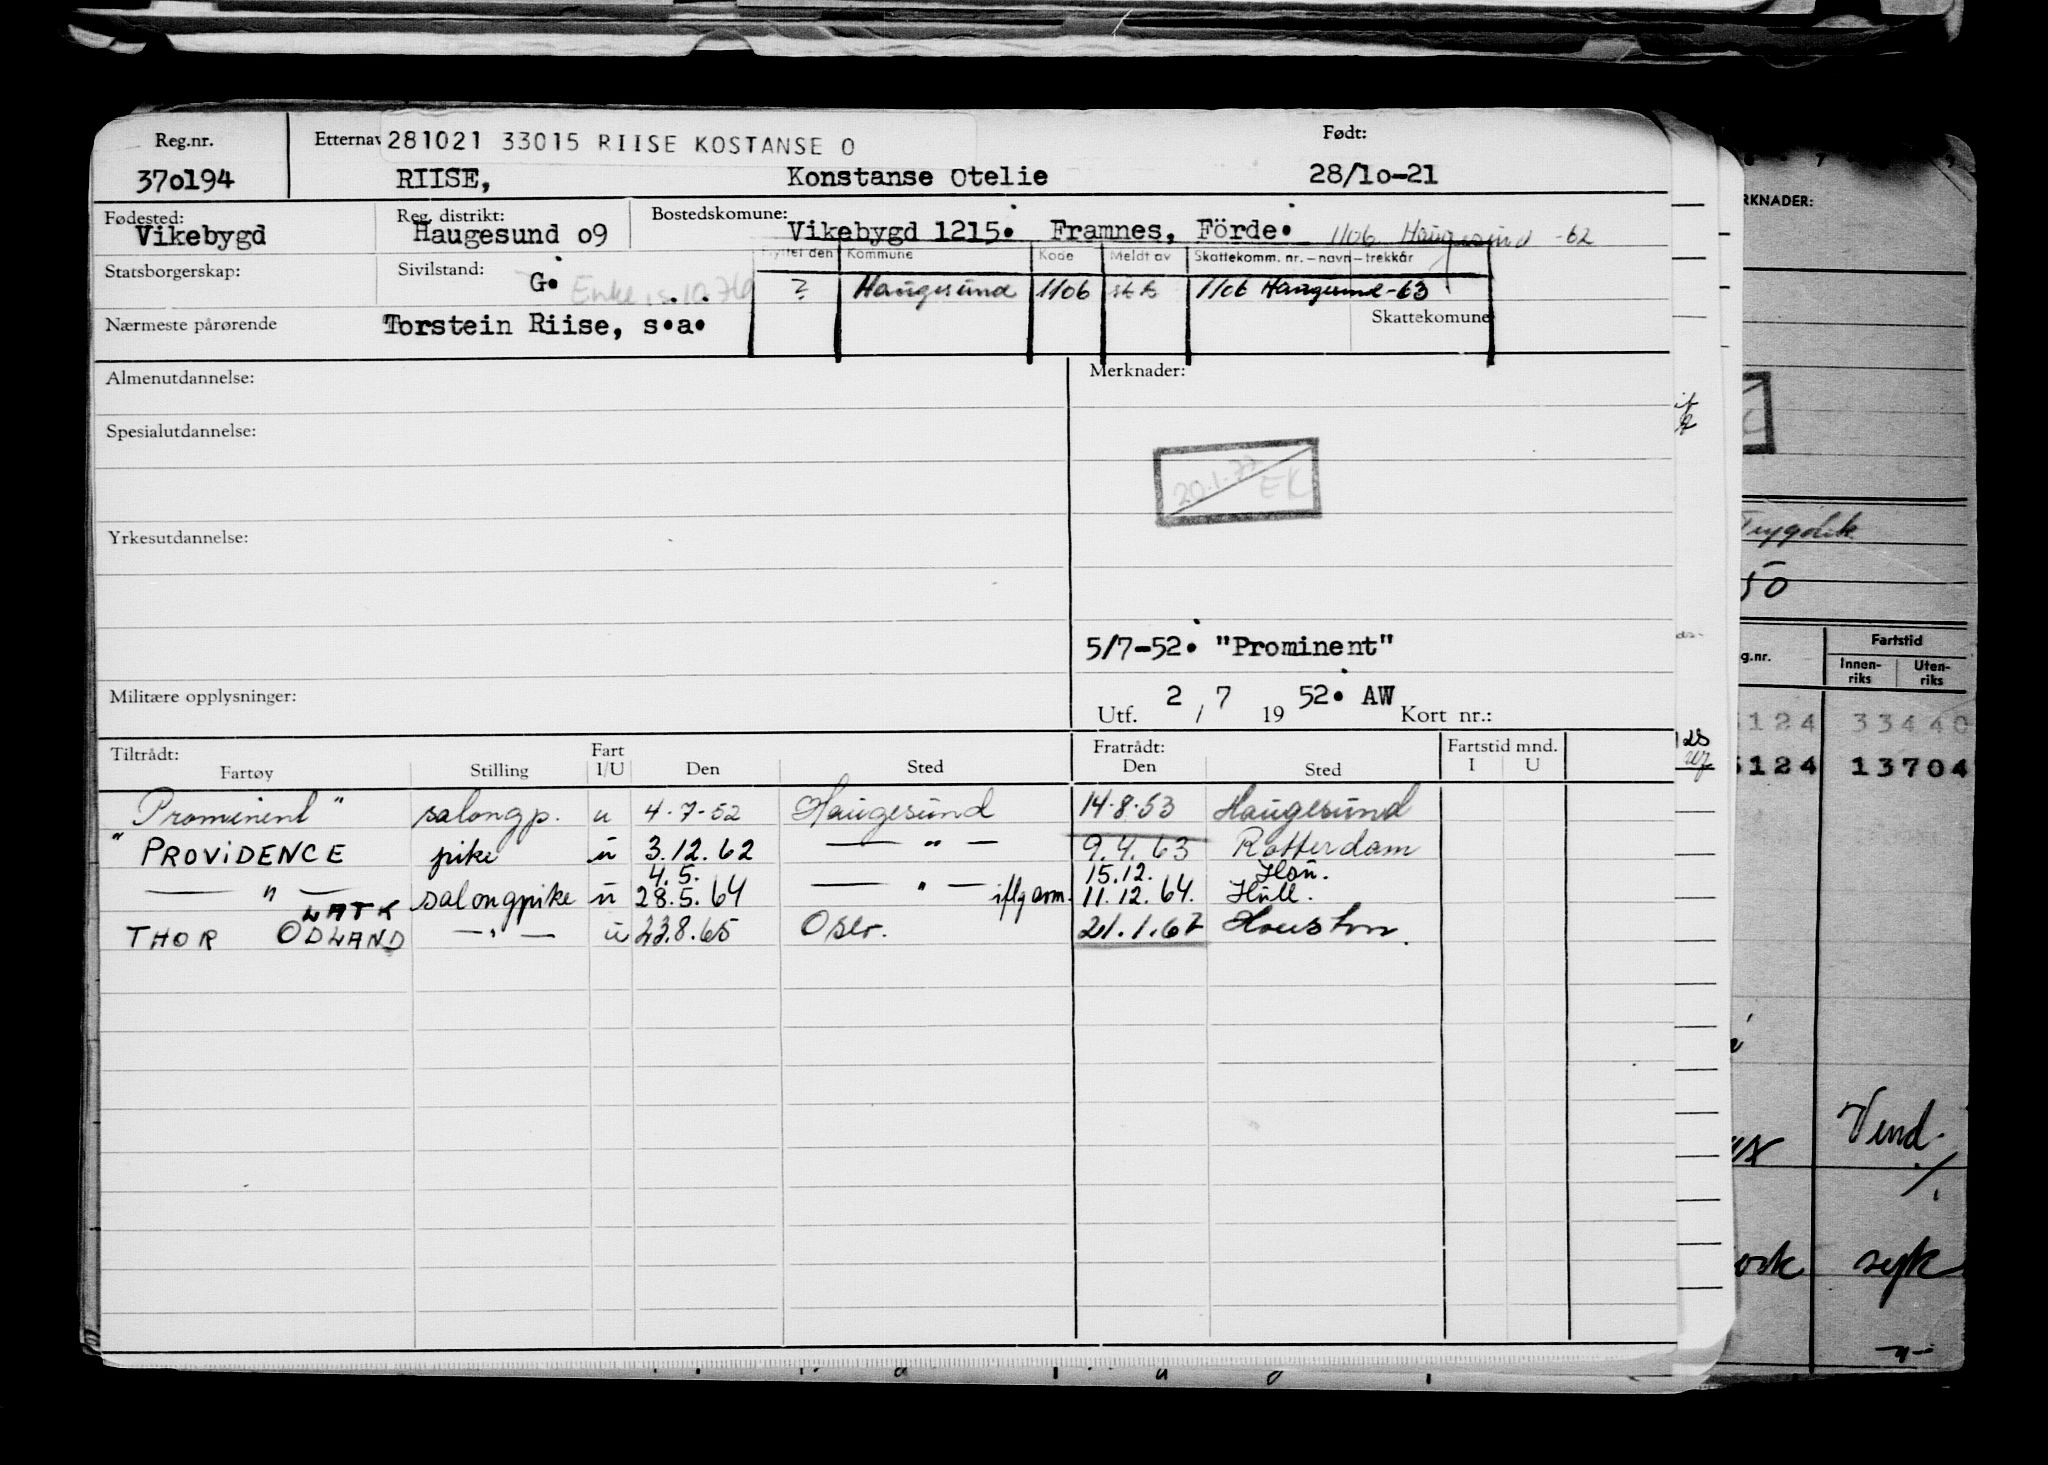 Reg.nr. Etternav 281021 33015 RIISE KOSTANSE O Født:
370194 RIISE, Konstanse Otelie 28/10-21
Fødested: Reg. distrikt: Bostedskomune:
Vikebygd Haugesund 09 Vikebygd 1215. Framnes, Förde. 1106 Haugesund -62
Statsborgerskap: Sivilstand: G. Enke
Flyttet den Kommune Kode Meldt av Skattekomm. nr. – navn – trekkår
? Haugesund 1106 1106 Haugesund-63
Nærmeste pårørende Torstein Riise, s.a. Skattekomune
Almenutdannelse: Merknader:
Spesialutdannelse:
20.1.77 EK
Yrkesutdannelse:
5/7-52. "Prominent"
Militære opplysninger: Utf. 2 / 7 19 52. AW Kort nr.:
Tiltrådt: Fart Fratrådt: Fartstid mnd.
Fartøy Stilling I/U Den Sted Den Sted I U
Prominent " salongp. u 4.7-52 Haugesund 14.8.53 Haugesund
" PROVIDENCE pike u 3.12.62 — " — 9.4.63 Rotterdam
4.5. 15.12. Hou.
— " — salongpike u 28.5.64 — " — iflg arm. 11.12.64. Hull.
LATK
THOR ODLAND — " — u 23.8.65 Oslo. 21.1.67 Houston.
RKNADER:
Trygdek
50
g.nr. Fartstid
Innen-
riks Uten-
riks
124 33440
5124 13704
Vend.
syk